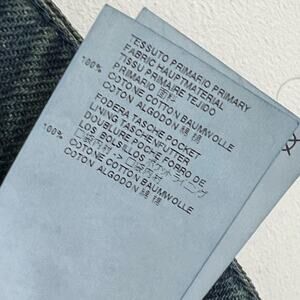 TESSUTO PRIMARIO PRIMARY
FABRIC HAUPTMATERIAL
TISSU PRIMAIRE TEJIDO
PRIMARIO 面料
100% COTONE COTTON BAUMWOLLE
COTON ALGODON 綿 棉
FODERA TASCHE POCKET
LINING TASCHENFUTTER
DOUBLURE POCHE FORRO DE
LOS BOLSILLOS ポケットライニング
口袋内衬 -> 口袋内衬
100% COTONE COTTON BAUMWOLLE
COTON ALGODON 綿 棉
XX